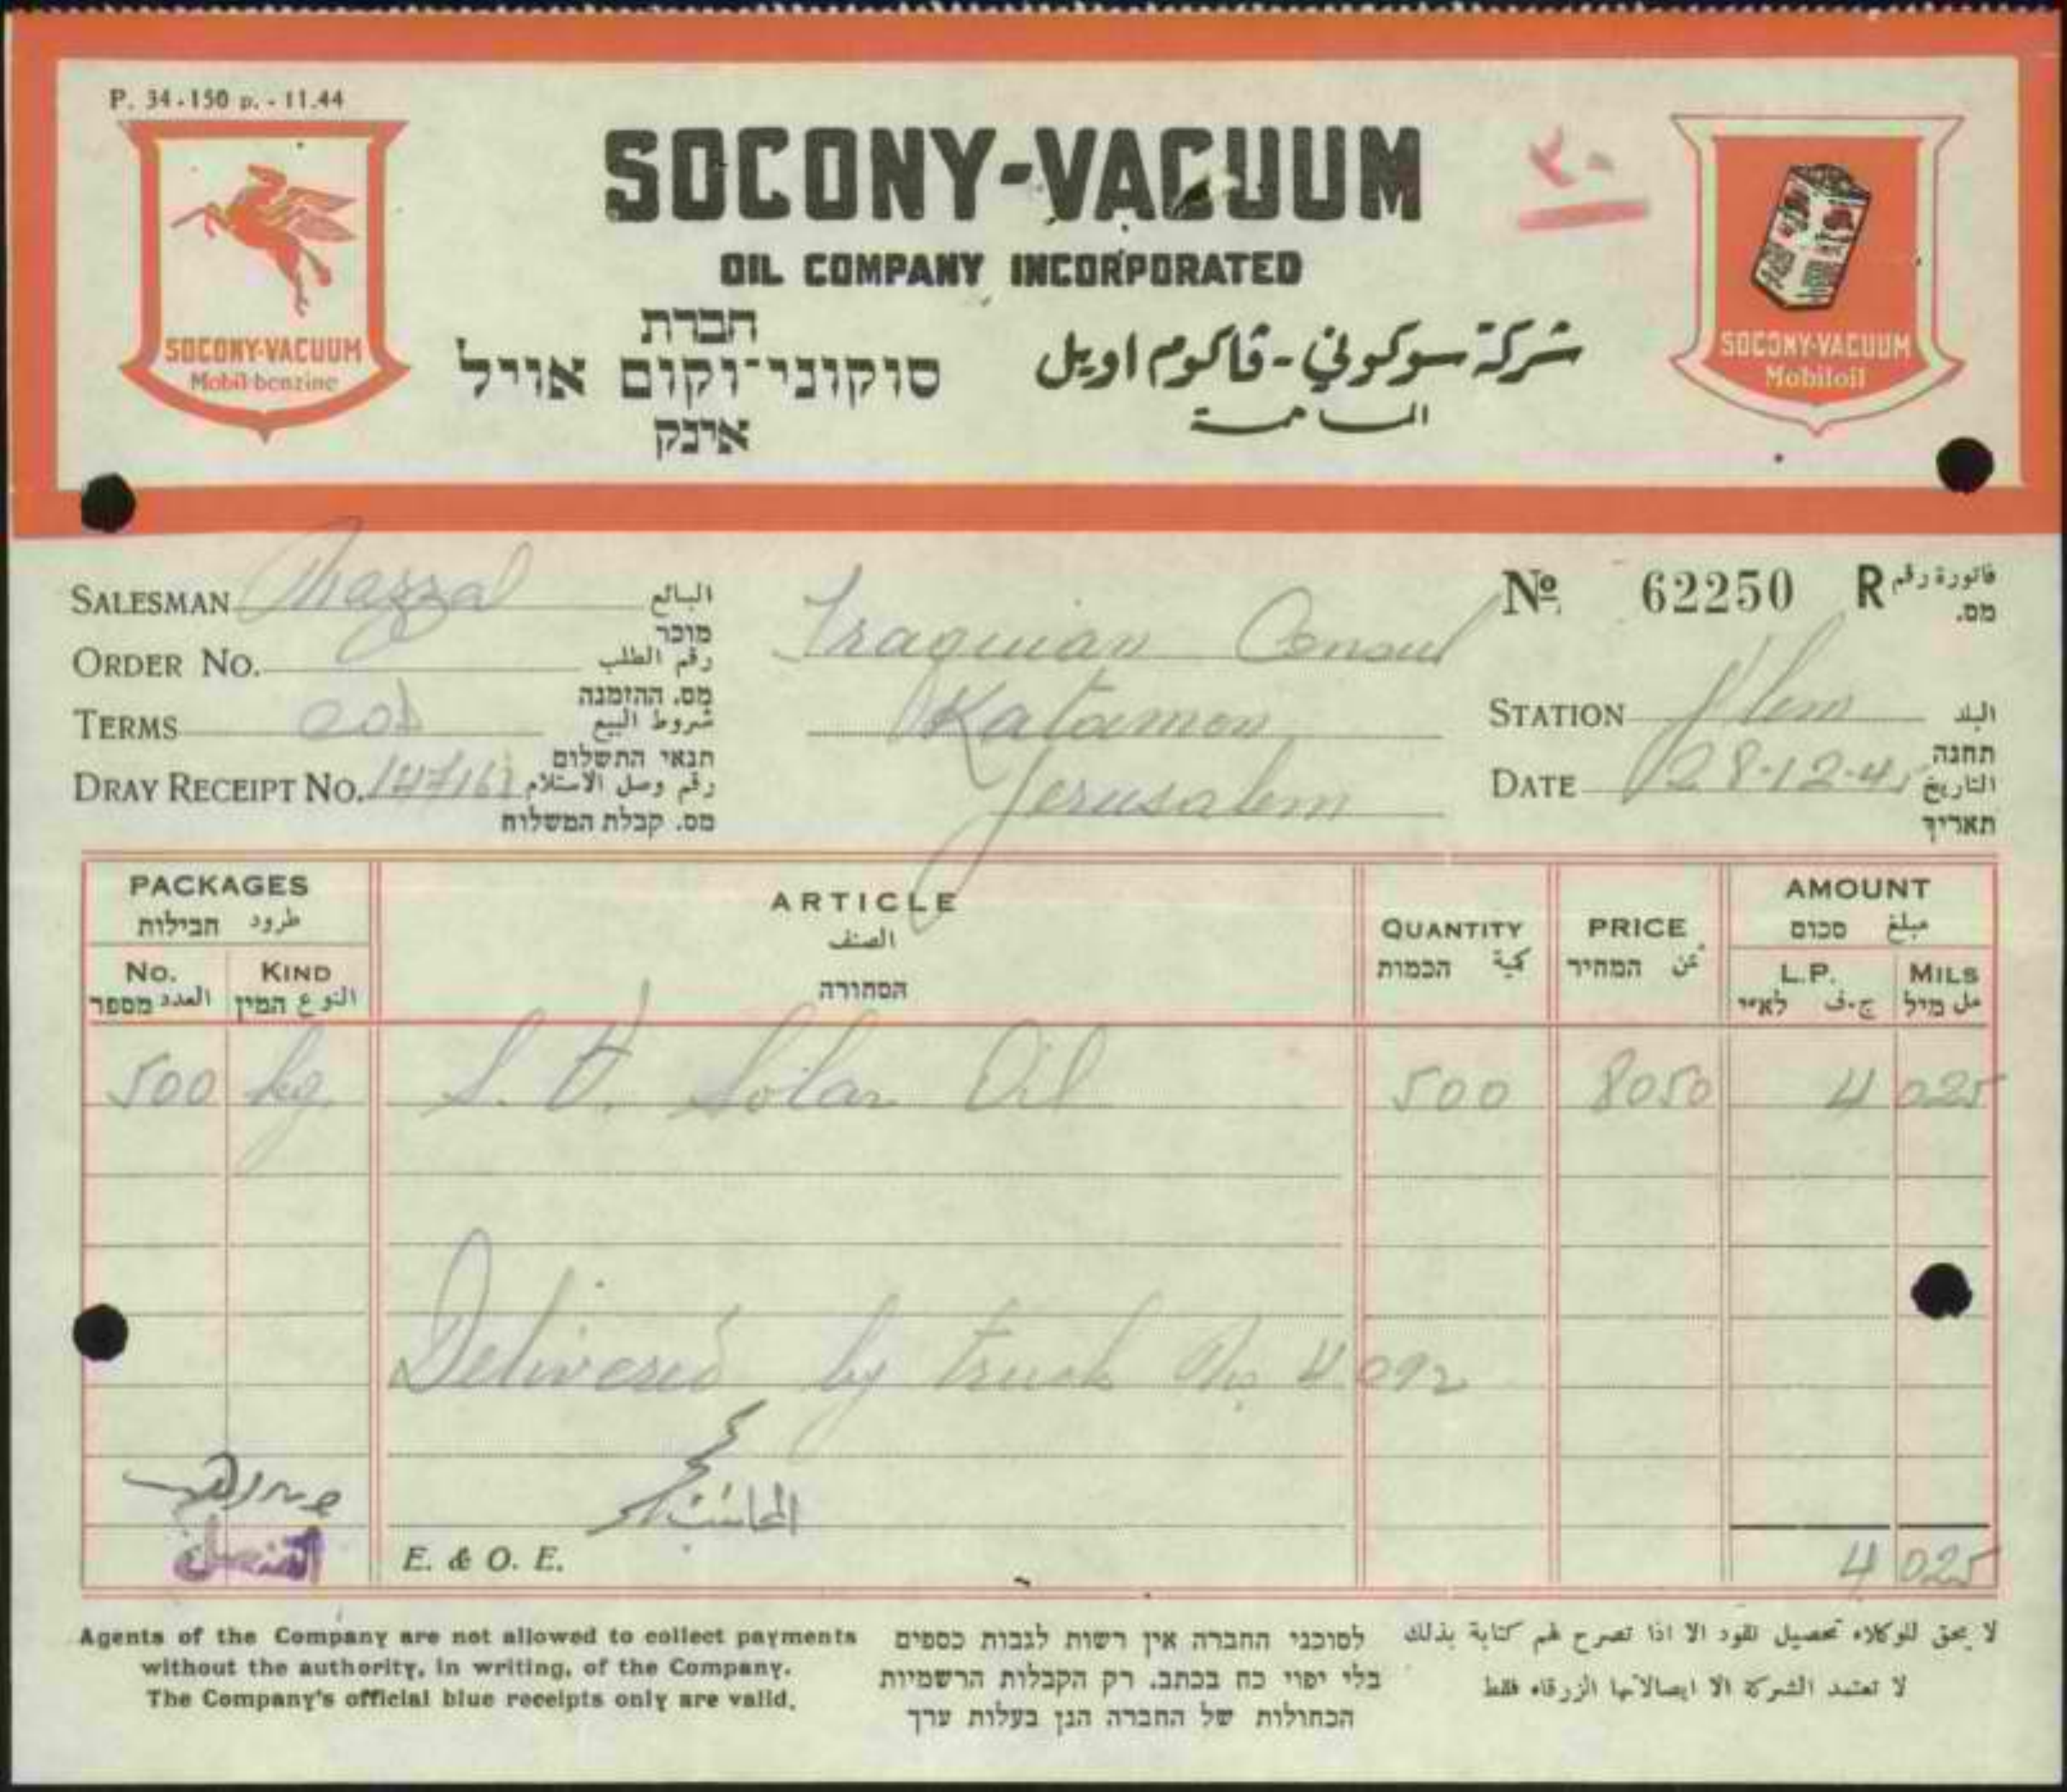 P. 34-150 p. - 11.44
SOCONY-VACUUM
OIL COMPANY INCORPORATED
חברת
סוקוני־וקום אויל
אינק
شركة سوكوني - ڤاكوم اويل
المساهمة
SOCONY-VACUUM
Mobil-benzine
SOCONY-VACUUM
Mobiloil
٢٠
SALESMAN البائع
מוכר
ORDER No. رقم الطلب
מס. ההזמנה
TERMS cod شروط البيع
תנאי התשלום
DRAY RECEIPT No. رقم وصل الاستلام
מס. קבלת המשלוח
Iraquian Consul
Katamon
Jerusalem
No 62250 R فاتورة رقم
מס.
STATION J'lem البلد
תחנה
DATE 28-12-45 التاريخ
תאריך
PACKAGES
חבילות طرود
No. KIND
מספר العدد המין النوع
ARTICLE
الصنف
הסחורה
QUANTITY
הכמות كمية
PRICE
המחיר ثمن
AMOUNT
סכום مبلغ
L.P. MILS
לא״י ج.ف מיל مل
500 kg. S.V. Solar Oil 500 8050 4 025
Delivered by truck No 4092
القنصل
E. & O. E.
4 025
Agents of the Company are not allowed to collect payments
without the authority, in writing, of the Company.
The Company's official blue receipts only are valid.
לסוכני החברה אין רשות לגבות כספים
בלי יפוי כח בכתב. רק הקבלות הרשמיות
הכחולות של החברה הנן בעלות ערך
لا يحق للوكلاء تحصيل نقود الا اذا تصرح لهم كتابة بذلك
لا تعتمد الشركة الا ايصالاتها الزرقاء فقط